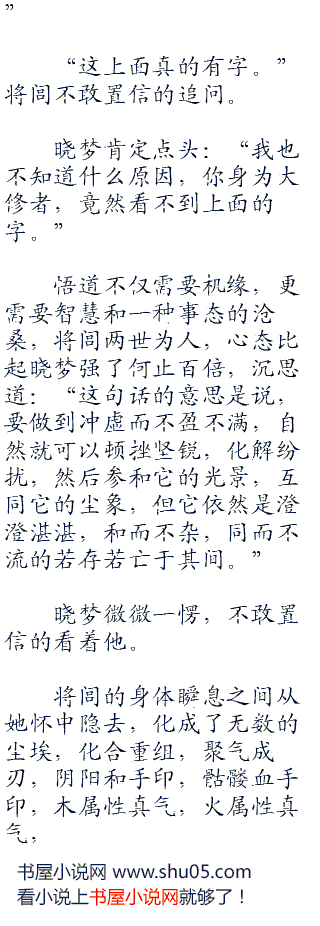 ”
“这上面真的有字。”
将闾不敢置信的追问。
晓梦肯定点头：“我也
不知道什么原因，你身为大
修者，竟然看不到上面的
字。”
悟道不仅需要机缘，更
需要智慧和一种事态的沧
桑，将闾两世为人，心态比
起晓梦强了何止百倍，沉思
道：“这句话的意思是说，
要做到冲虚而不盈不满，自
然就可以顿挫坚锐，化解纷
扰，然后参和它的光景，互
同它的尘象，但它依然是澄
澄湛湛，和而不杂，同而不
流的若存若亡于其间。”
晓梦微微一愣，不敢置
信的看着他。
将闾的身体瞬息之间从
她怀中隐去，化成了无数的
尘埃，化合重组，聚气成
刃，阴阳和手印，骷髅血手
印，木属性真气，火属性真
气，
书屋小说网 www.shu05.com
看小说上书屋小说网就够了！